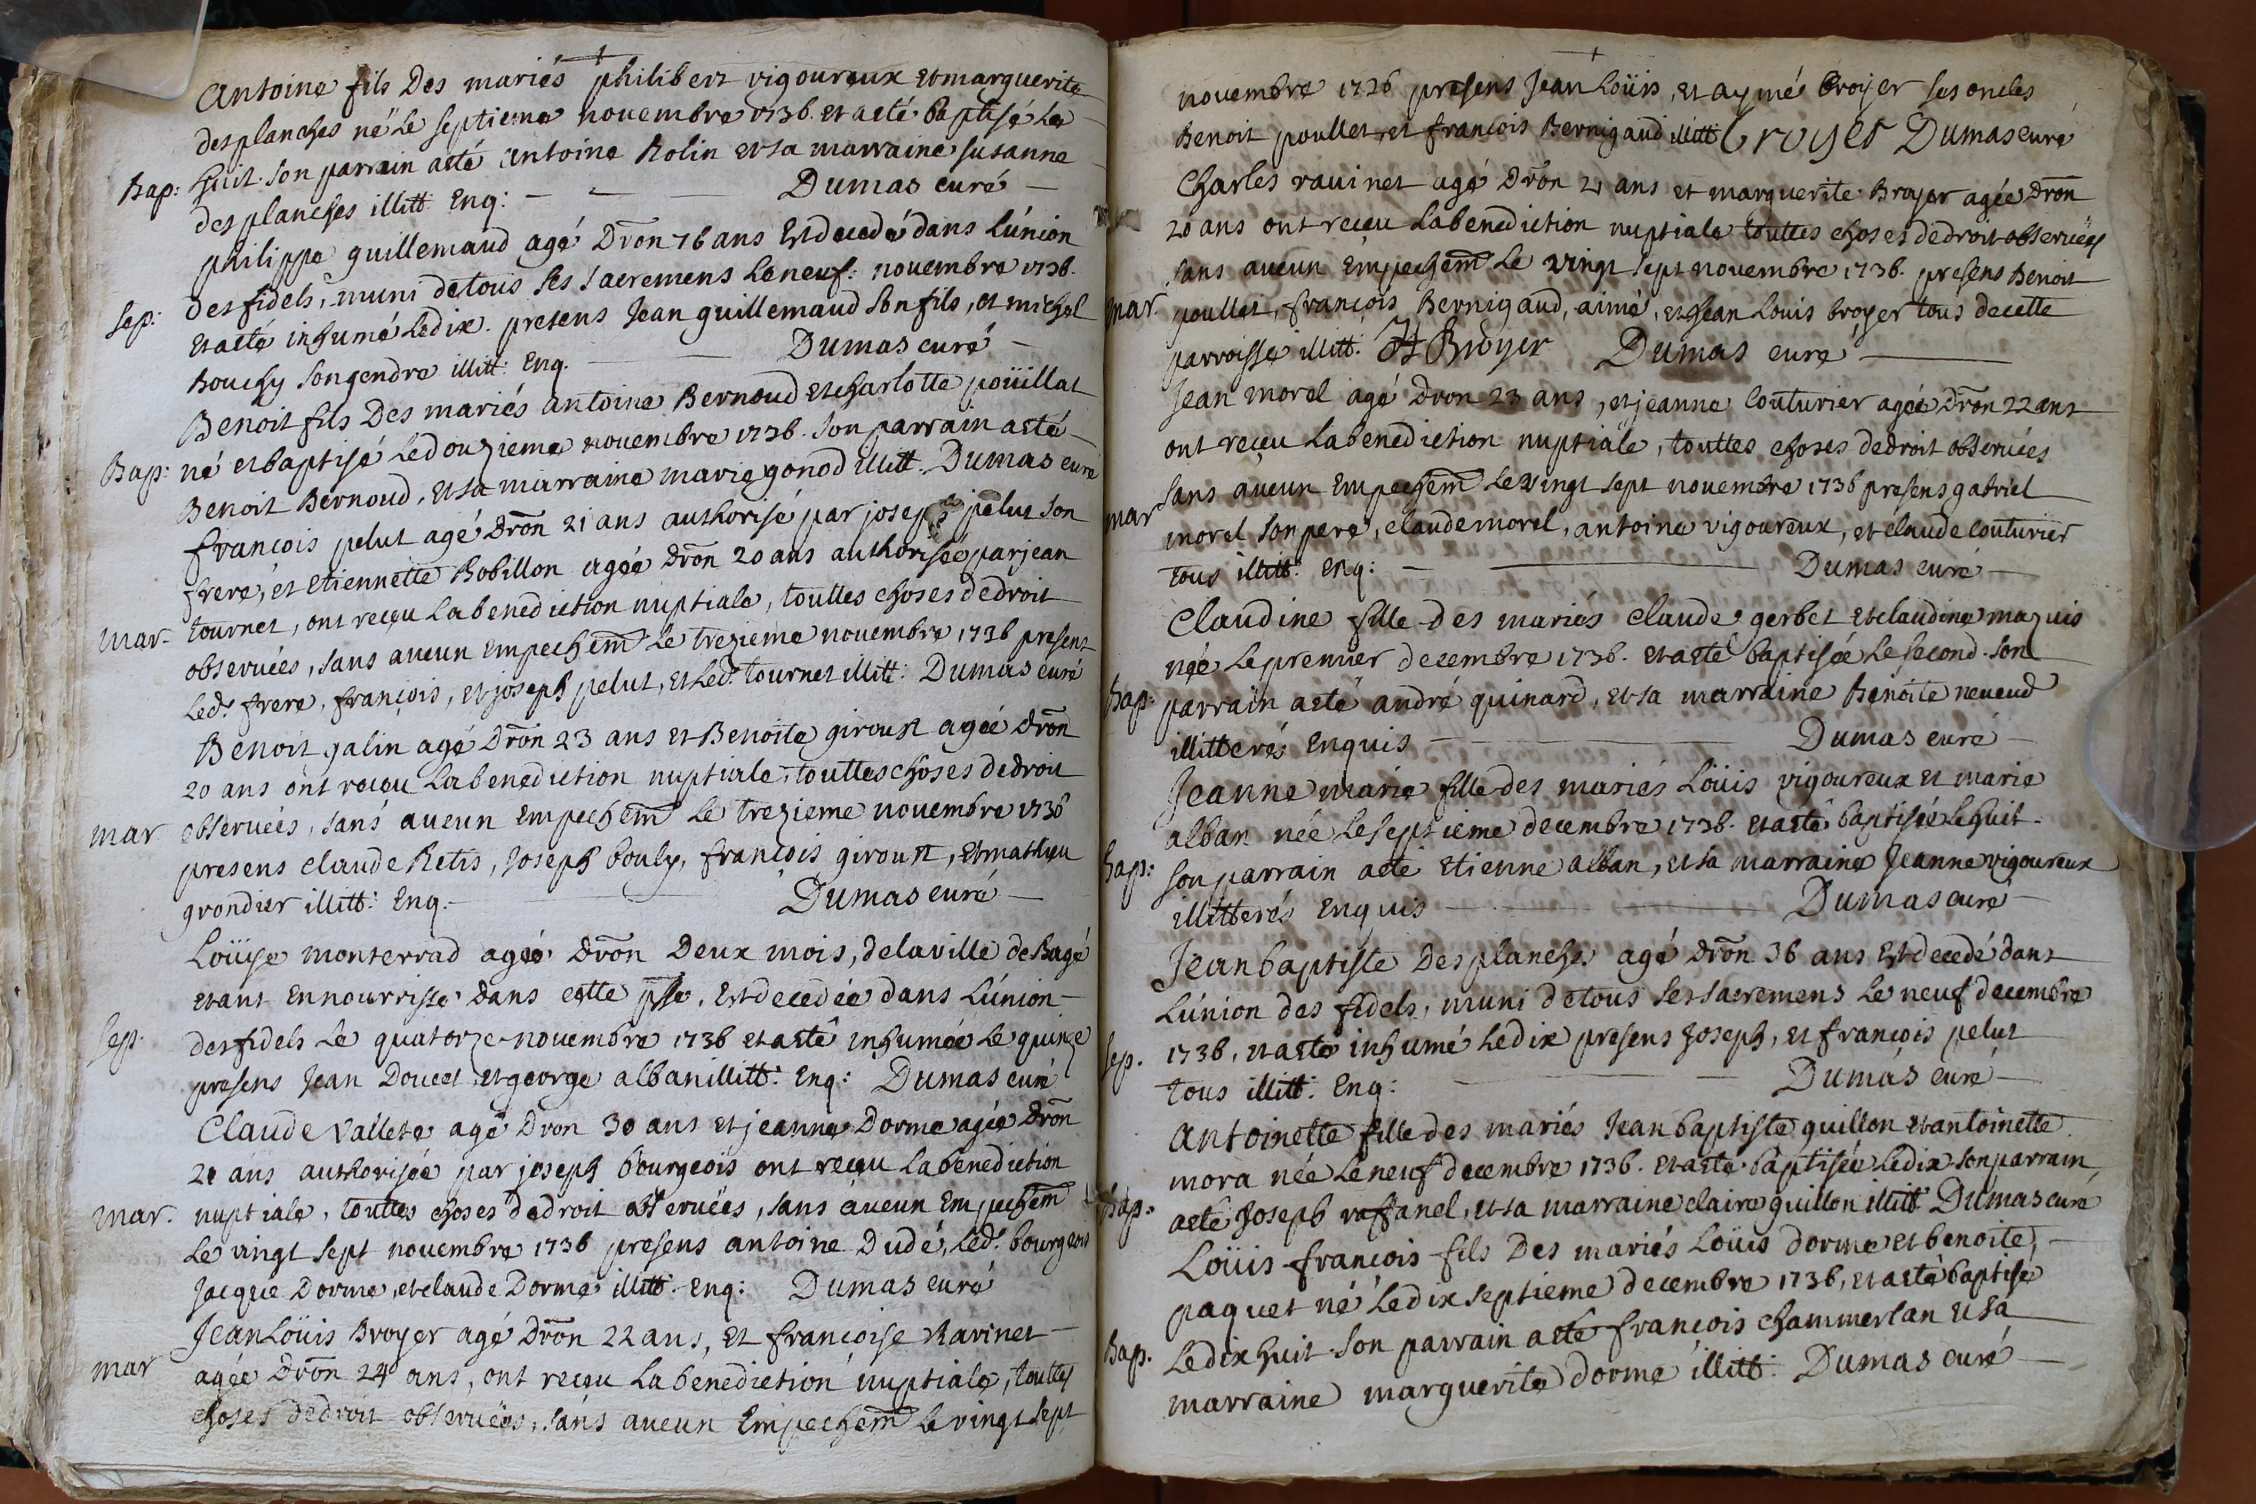 Antoine fils Des mariés philibert vigoureux et marguerite
desplanches né le septieme novembre 1736. et a eté baptisé le
Bap: huit. son parrain a eté antoine Rolin et sa marraine susanne
des planches illitt. Enq: — — — Dumas curé —
philippe guillemaud agé D'ron 76 ans Est decedé dans L'union
des fidels, muni de tous ses sacremens Le neuf: novembre 1736.
Sep: Et a eté inhumé Le dix. presens Jean guillemaud son fils, et michel
Bouchy son gendre illitt: Enq. — — Dumas curé —
Benoit fils Des mariés antoine Bernoud et charlotte poüillat
Bap: né et baptisé Le douzieme novembre 1736. Son parrain a eté
Benoit Bernoud, et sa marraine marie gonod illitt. Dumas curé
francois pelut agé D'ron 21 ans authorisé par joseph pelut son
frere, et Etiennette Robillon agée D'ron 20 ans authorisée par jean
mar. tournet, ont reçeu La benediction nuptiale, touttes choses de droit
observées, sans aucun empechem̃ Le trezieme novembre 1736 present
Led.t frere, françois, et joseph pelut, et Led.t tournet illitt: Dumas curé
Benoit galin agé D'ron 23 ans et Benoite giroust agée D'ron
20 ans ont reçeu La benediction nuptiale, touttes choses de droit
mar observées, sans aucun empechem̃ Le trezieme novembre 1736
presens claude Retis, Joseph bouly, françois giroust, et mathieu
grondier illitt: Enq. — — Dumas curé —
Loüise monterrad agée D'ron Deux mois, de la ville de Bagé
etant en nourrisse dans cette psse, Est decedée dans L'union
Sep. des fidels Le quatorze novembre 1736 et a eté inhumée Le quinze
presens Jean Doucet et george alban illitt: Enq: Dumas curé
Claude Vallete agé D'ron 30 ans et jeanne Dorme agée D'ron
21 ans authorisée par joseph bourgeois ont reçeu La benediction
mar. nuptiale, touttes choses de droit observées, sans aucun empechem̃
Le vingt sept novembre 1736 presens antoine Dudé, Led.t bourgeois
Jacque Dorme, et claude Dorme illitt. Enq: Dumas curé
Jean Loüis Broyer agé D'ron 22 ans, et françoise Ravinet
mar agée D'ron 24 ans, ont reçeu La benediction nuptiale, touttes
choses de droit observées, sans aucun Empechem̃ Le vingt sept
novembre 1736 presens Jean Loüis, et aymé broyer ses oncles
Benoit poullet, et francois Bernigaud illitt: Croyer Dumas curé
Charles ravinet agé D'ron 21 ans et marguerite Broyer agée D'ron
20 ans ont reçeu La benediction nuptiale touttes choses de droit observées
sans aucun Empechem̃ Le vingt sept novembre 1736. presens Benoit
mar. poullet, françois Bernigaud, aimé, et jean Louis broyer tous de cette
parroisse illitt: Broyer Dumas curé —
Jean morel agé D'ron 23 ans, et jeanne Couturier agée D'ron 22 ans
ont reçeu La benediction nuptiale, touttes choses de droit observées
mar sans aucun Empechem̃ Le vingt sept novembre 1736 presens gabriel
morel son pere, claude morel, antoine vigoureux, et claude Couturier
tous illitt: Enq: — — Dumas curé —
Claudine fille des mariés claude gerbet et claudine mazuis
née Le premier decembre 1736. et a eté baptisée Le second. son
Bap: parrain a eté andré quinard, et sa marraine Benoite neveud
illitterés Enquis — — Dumas curé —
Jeanne marie fille des mariés Loüis vigoureux et marie
alban née Le septieme decembre 1736. et a eté baptisée Le huit
bap: son parrain a eté etienne alban, et sa marraine Jeanne vigoureux
illitterés Enquis — — Dumas curé —
Jean baptiste Desplanches agé D'ron 36 ans Est decedé dans
L'union des fidels, muni de tous ses sacremens Le neuf decembre
Sep. 1736, et a eté inhumé Le dix presens Joseph, et françois pelut
tous illitt: Enq: — — Dumas curé —
Antoinette fille des mariés Jean baptiste guillon et antoinette
mora née Le neuf decembre 1736. et a eté baptisée Le dix son parrain
Bap: a eté Joseph raffanel, et sa marraine claire guillon illitt: Dumas curé
Loüis françois fils Des mariés Loüis dorme et benoite
paquet né Le dix septieme decembre 1736, et a eté baptisé
Bap. Le dix huit. son parrain a eté françois chammerlan et sa
marraine marguerite dorme illitt: Dumas curé —